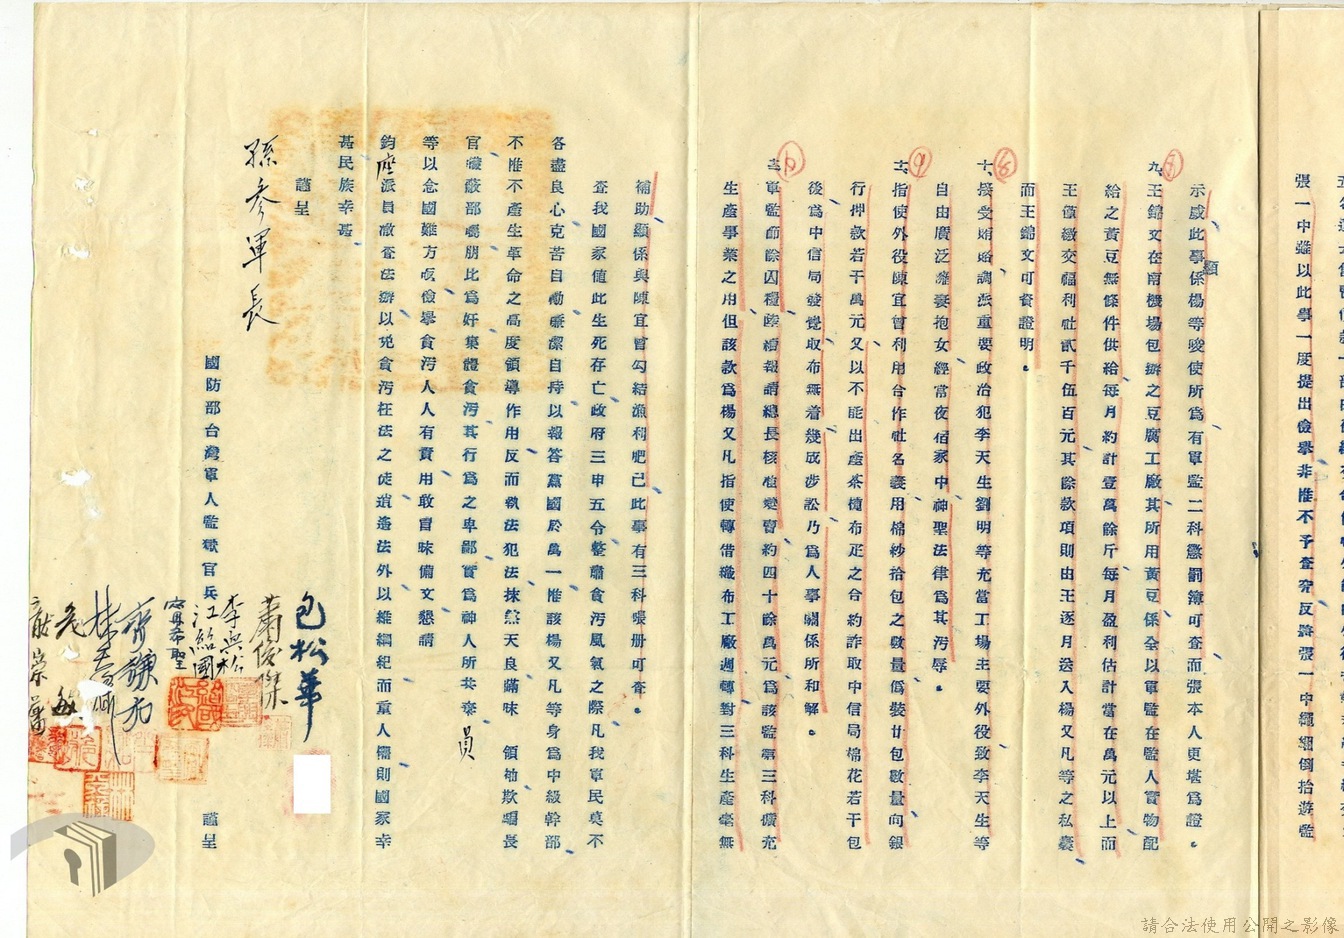 張一中雖以此事一度提出儉舉非惟不予查究反將張一中綑綑倒抬遊監
示威此事係楊等唆使所為有軍監二科懲罰簿可查而張本人更堪為證。
九、王錦文在南機場包辦之豆腐工廠其所用黃豆係全以軍監在監人實物配
給之黃豆無條件供給每月約計壹萬餘斤每月盈利估計當在萬元以上而
王僅繳交福利社貳千伍百元其餘款項則由王逐月送入楊又凡等之私囊
而王錦文可資證明。
十、接受賄賂調派重要政治犯李天生劉明等充當工場主要外役致李天生等
自由廣泛攜妻抱女經常夜宿家中神聖法律為其污辱。
指使外役陳宜曾利用合作社名義用棉紗拾包之數量偽裝廿包數量向銀
行押款若干萬元又以不能出產茶種布疋之合約詐取中信局棉花若干包
後為中信局發覺取布無着幾成涉訟乃為人事關係所和解。
軍監節餘囚糧陸續報請總長核准變賣約四十餘萬元為該監第三科擴充
生產事業之用但該款為楊又凡指使轉借織布工廠週轉對三科生產毫無
補助顯係與陳宜曾勾結漁利肥己此事有三科賬册可查。
查我國家值此生死存亡政府三申五令整肅貪污風氣之際凡我軍民莫不
各盡良心克苦自勵廉潔自持以報答黨國於萬一惟該楊又凡等身為中級幹部
不惟不產生革命之高度領導作用反而執法犯法抹煞天良瞞昧 領袖欺矇長
官懺蔽部屬朋比為奸集體貪污其行為之卑鄙實為神人所共棄員
等以念國難方殷儉舉貪污人人有責用敢冒昧備文懇請
鈞座派員澈查法辦以免貪污枉法之徒逍遙法外以維綱紀而重人權則國家幸
甚民族幸甚
謹呈
孫參軍長
國防部台灣軍人監獄官兵 謹呈
包松華
蕭俊傑
李興松
江紹國
甯希聖
齊謙初
請合法使用公開之影像